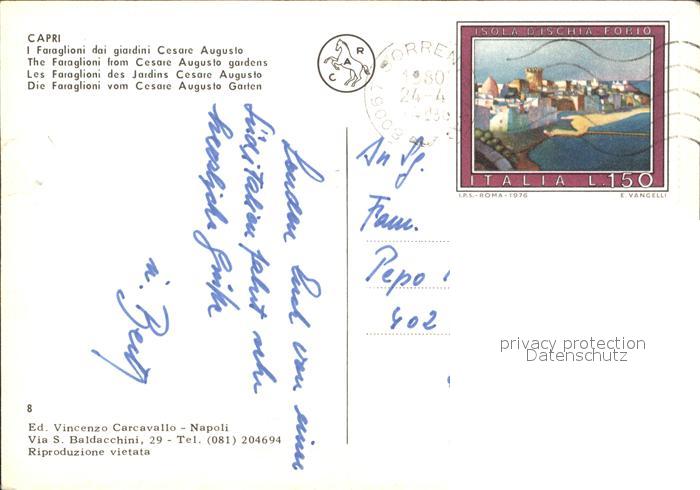 CAPRI
I Faraglioni dai giardini Cesare Augusto
The Faraglioni from Cesare Augusto gardens
Les Faraglioni des Jardins Cesare Augusto
Die Faraglioni vom Cesare Augusto Garten
CAR
SORREN
1980
24-4
80067
ISOLA D'ISCHIA FORIO
ITALIA L.150
I.P.S.-ROMA-1976 E. VANGELLI
Senden Euch von einer
Süditalien fahrt sehr
herzliche Grüße
An Fg.
Fam.
Pepo
402
privacy protection
Datenschutz
8
Ed. Vincenzo Carcavallo - Napoli
Via S. Baldacchini, 29 - Tel. (081) 204694
Riproduzione vietata